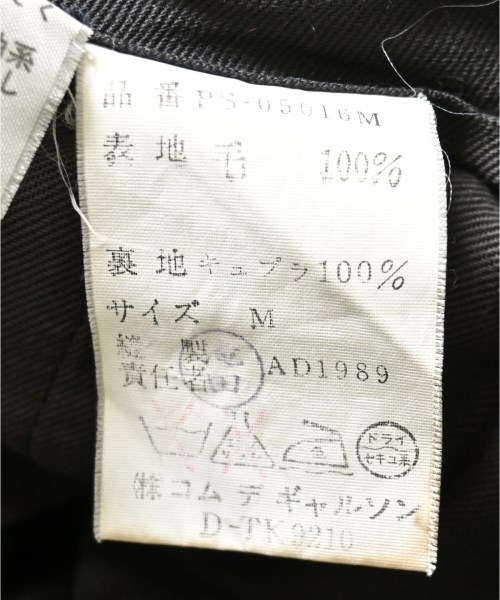 く
系
し
品番 PS-05016M
表地 毛 100%
裏地 キュプラ 100%
サイズ M
縫製
責任者 AD1989
ドライ
セキユ系
㈱コム デ ギャルソン
D-TK9210